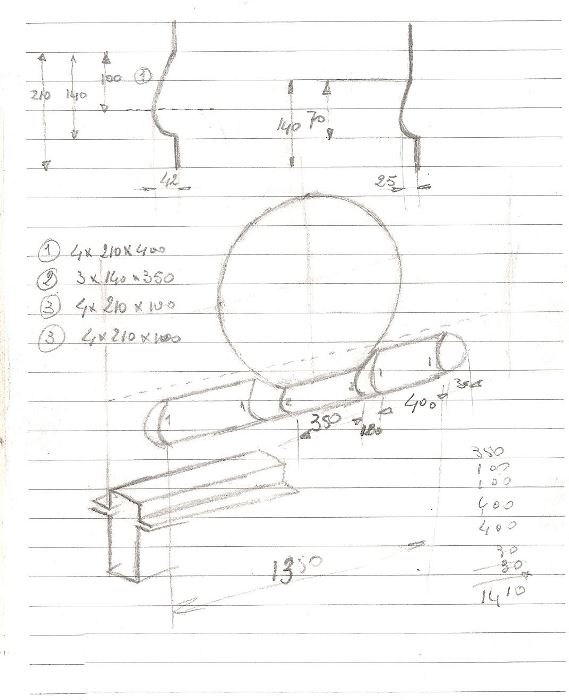 210 140 100 1
140 70
42 25
1 4x210x400
2 3x140x350
3 4x210x100
3 4x210x100
1 1 2 2 1 1
350 100 400 30
1350
350
100
100
400
400
30
30
1410